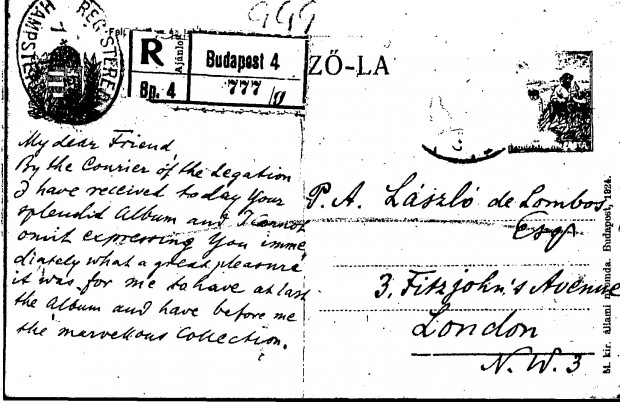 999
REGISTERED
HAMPSTE
R
Ajánlo
Budapest 4
Bp. 4
777
ZŐ-LA
My dear Friend,
By the Courier of the Legation
I have received today Your
splendid Album and I cannot
omit expressing You imme
diately what a great pleasure
it was for me to have at last
the Album and have before me
the marvellous Collection.
P. A. László de Lombos
Esq.
3. Fitzjohn's Avenue
London
N.W.3
M. kir. állami nyomda. Budapest, 1924.